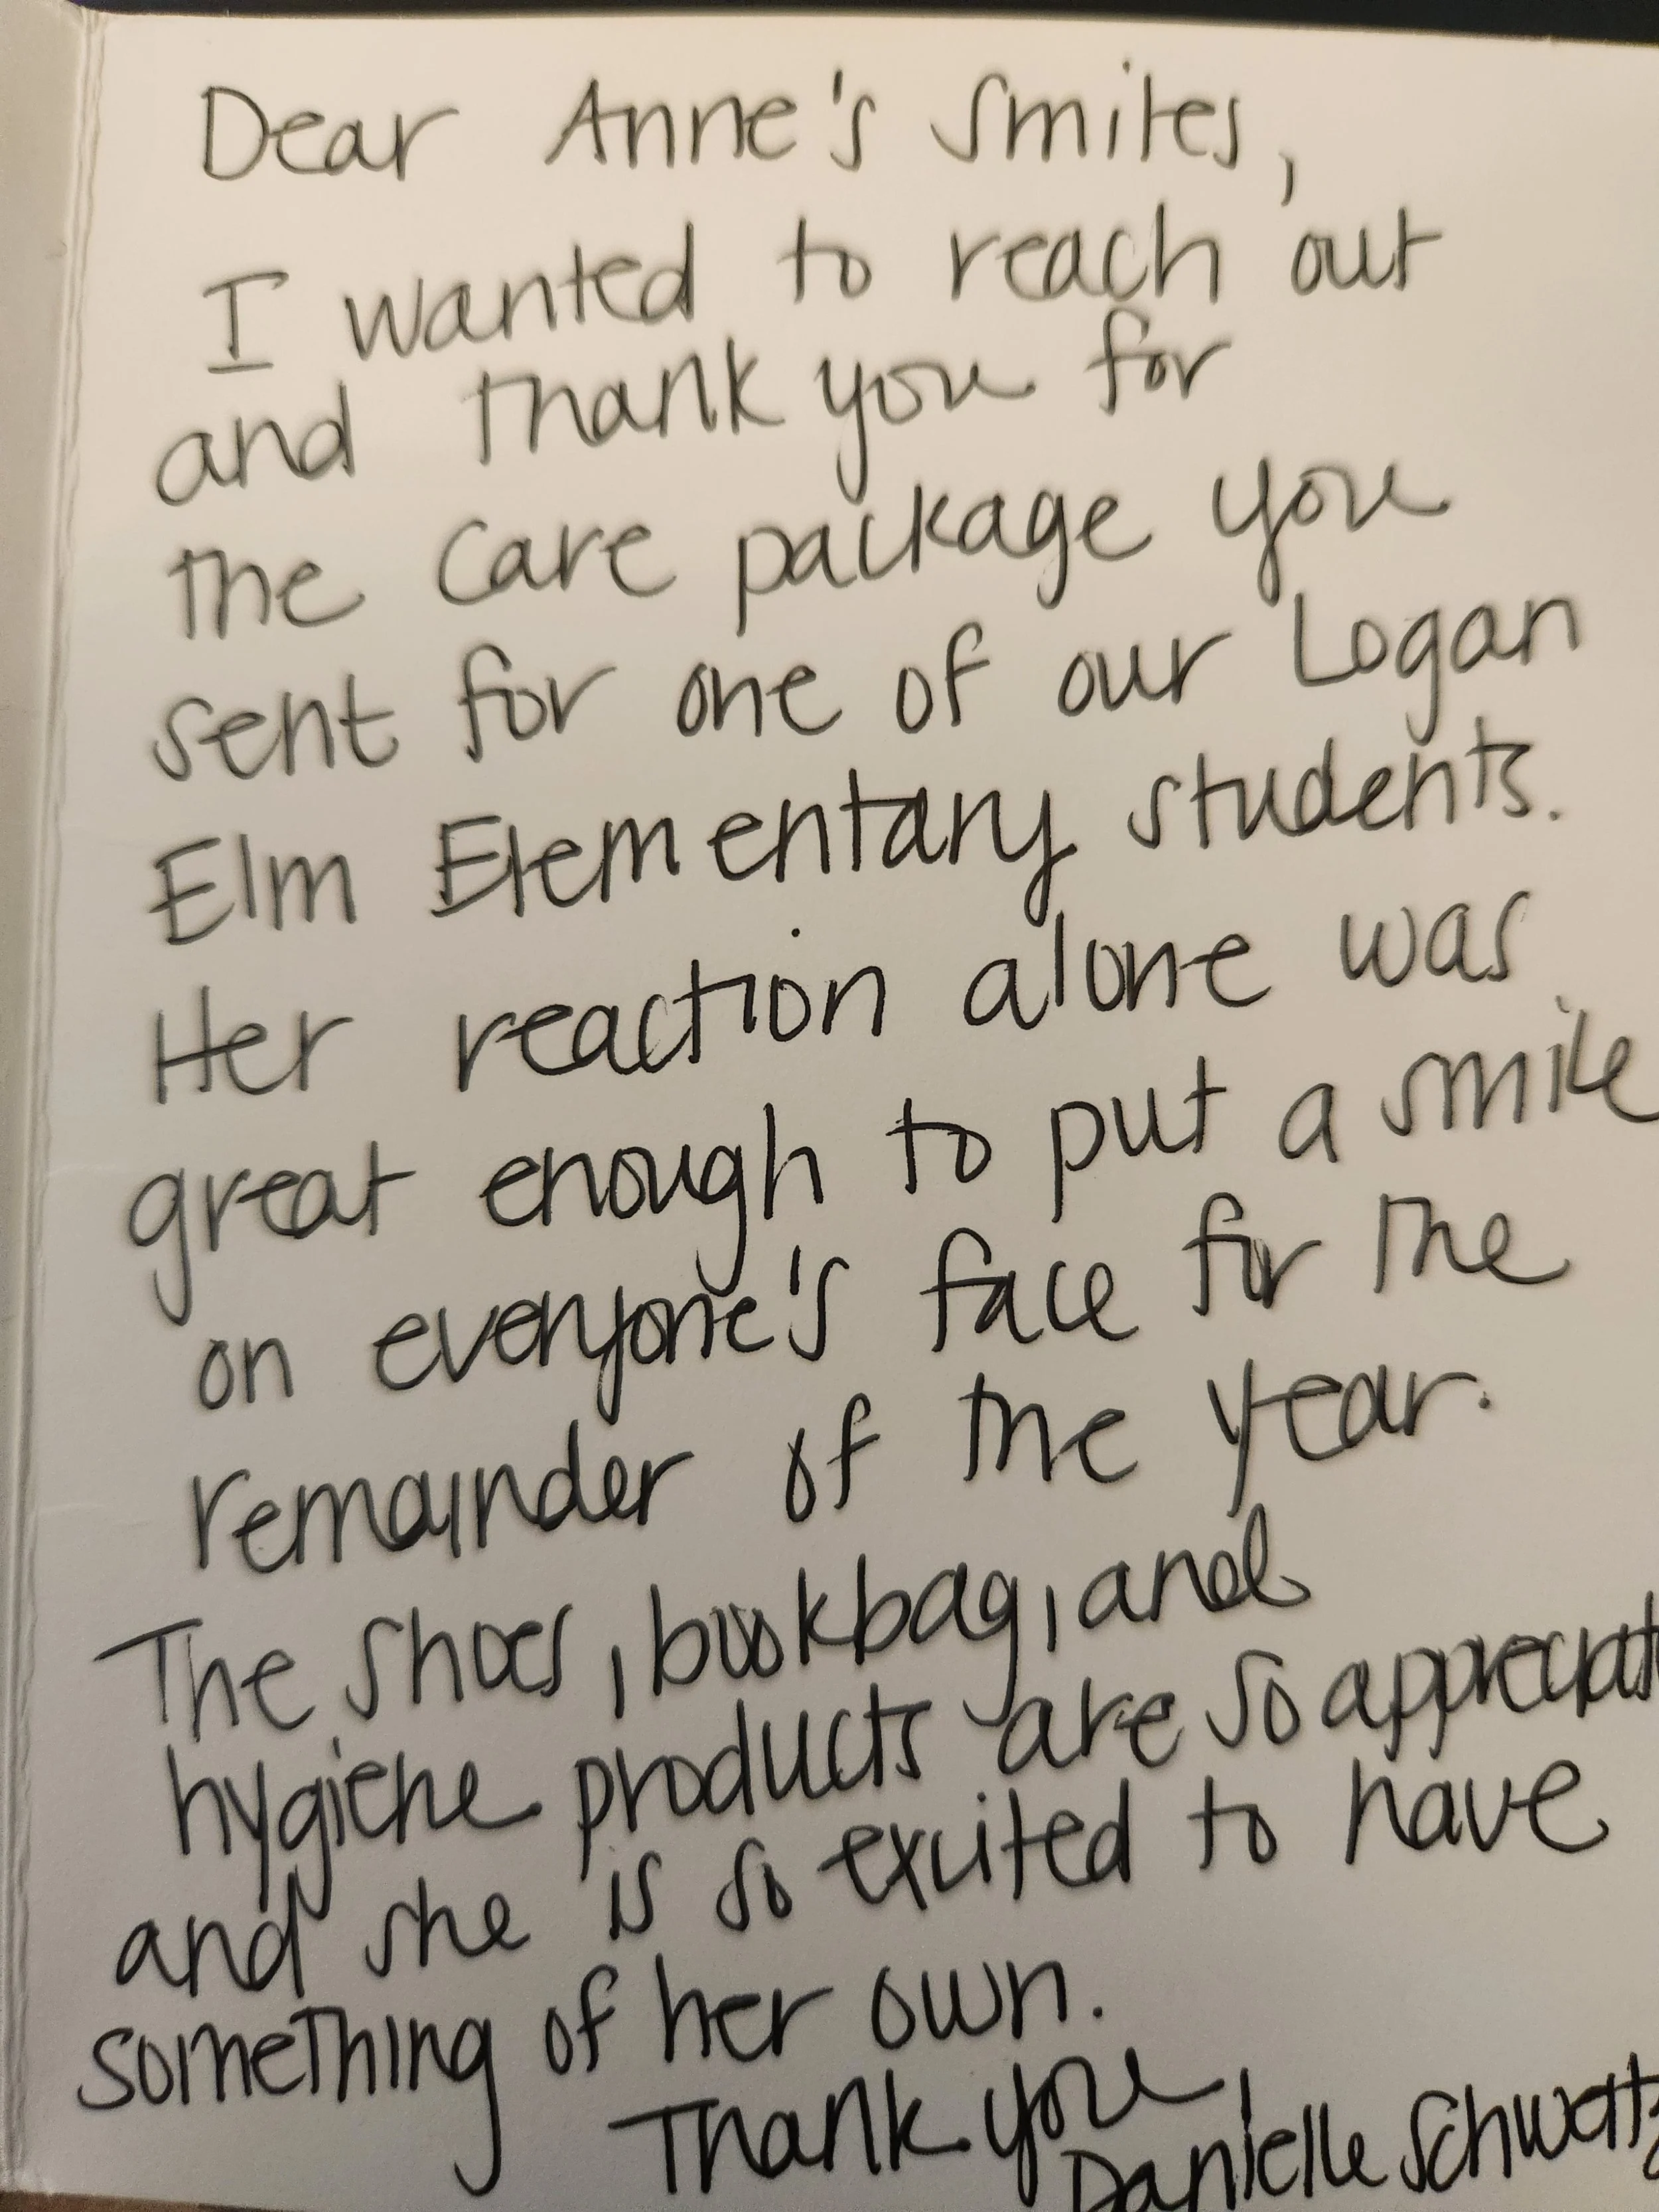 Dear Anne's Smiles,
I wanted to reach out
and thank you for
the care package you
sent for one of our Logan
Elm Elementary students.
Her reaction alone was
great enough to put a smile
on everyone's face for the
remainder of the year.
The shoes, bookbag, and
hygiene products are so appreciat
and she is so excited to have
something of her own.
Thank you,
Danielle